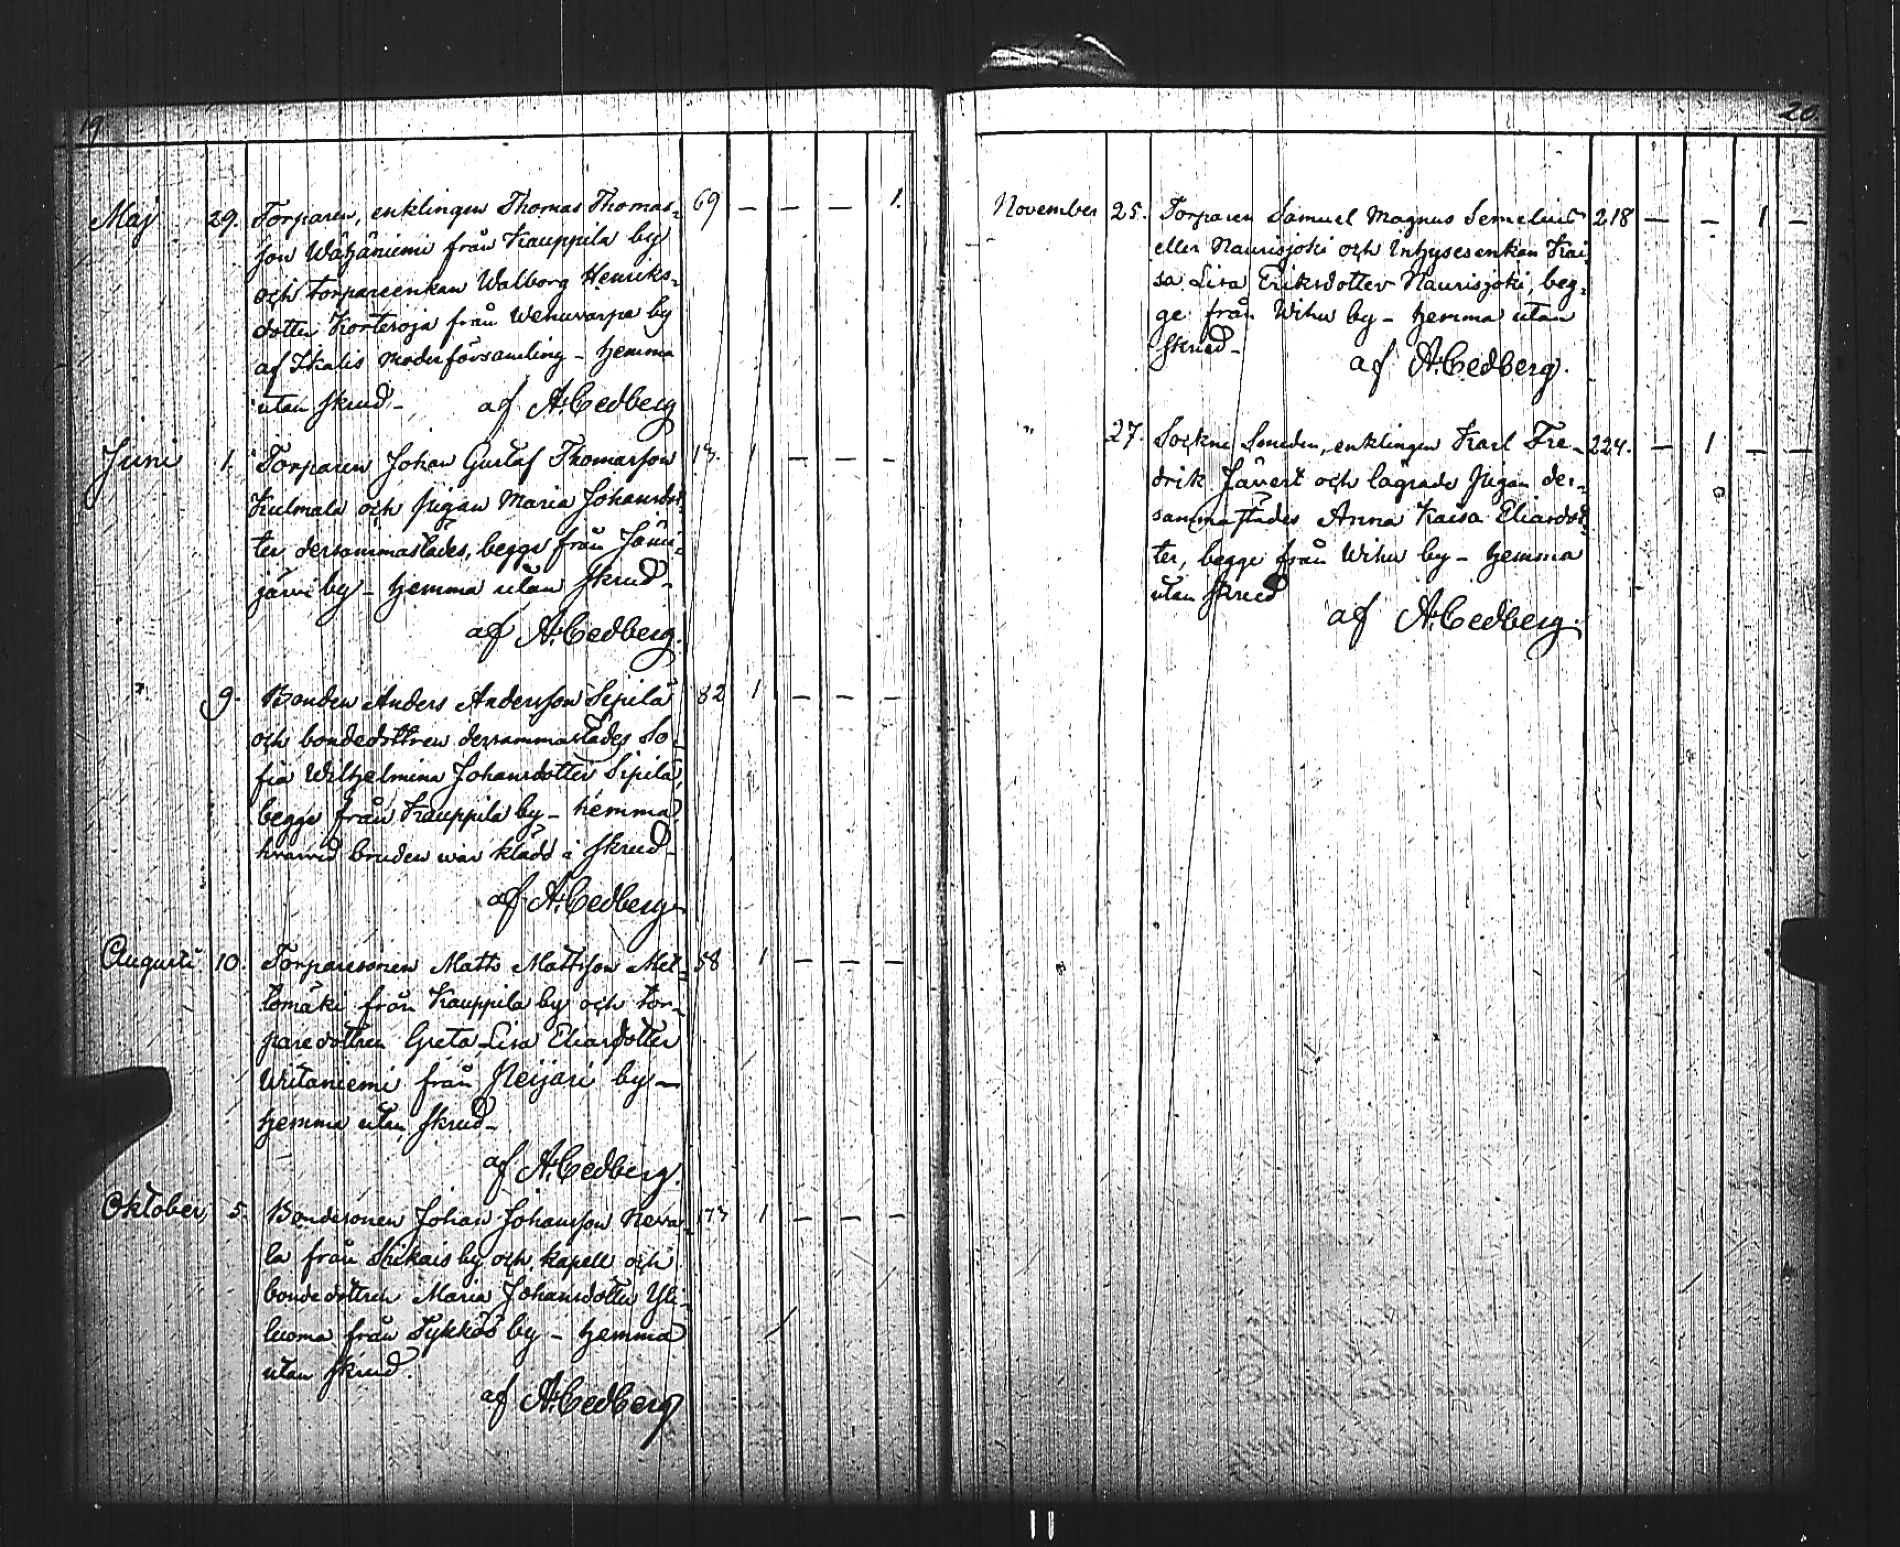 19
Maj 29. Torparen, enklingen Thomas Thomas= 69 — — — 1.
son Wähäniemi från Kauppila by
och torpareenkan Walborg Henriks=
dotter Kortesoja från Wehuvarpe by
af Ikalis moderförsamling – hemma
utan skrud – af A. Cedberg
Juni 1. Torparen Johan Gustaf Thomasson 13. 1 — — —
Kulmala och pigan Maria Johansdot=
ter dersammastädes, begge från Jämi=
järvi by – hemma utan skrud –
af A. Cedberg.
" 9. Bonden Anders Andersson Sipilä 82 1 — — —
och bondedottren dersammastädes So=
fia Wilhelmina Johansdotter Sipilä,
begge från Kauppila by – hemma
hvarvid bruden war klädd i skrud –
af A. Cedberg
Augusti 10. Torparesonen Matts Mattsson Met= 58 1 — — —
tomäki från Kauppila by och tor=
paredottren Greta Lisa Eliasdotter
Witaniemi från Peijari by –
hemma utan skrud –
af A. Cedberg.
Oktober 5. Bondesonen Johan Johansson Neva= 173 1 — — —
la från by och kapell och
bondedottren Maria Johansdotter Yli=
luoma från Tykköö by – hemma
utan skrud.
af A. Cedberg
20.
November 25. Torparen Samuel Magnus Semelius 218 — — 1 —
eller Naurisjoki och Inhysesenkan Kai=
sa Lisa Eriksdotter Naurisjoki, beg=
ge från Wihu by – hemma utan
skrud – af A. Cedberg.
" 27. Sockne Smeden, enklingen Karl Fre= 224. — 1 — —
drik Jävert och lägrade pigan der=
sammastädes Anna Kaisa Eliasdot=
ter, begge från Wihu by – hemma
utan skrud af A. Cedberg.
11